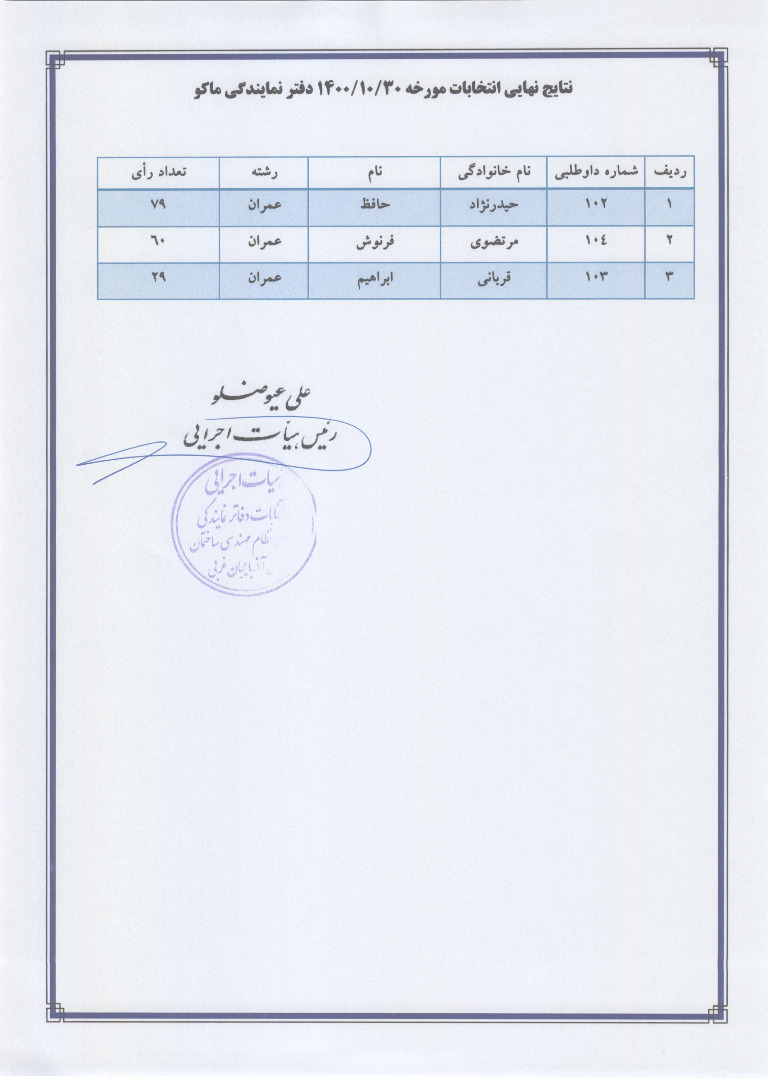 نتایج نهایی انتخابات مورخه ۱۴۰۰/۱۰/۳۰ دفتر نمایندگی ماکو
ردیف شماره داوطلبی نام خانوادگی نام رشته تعداد رأی
۱ ۱۰۲ حیدرنژاد حافظ عمران ۷۹
۲ ۱۰٤ مرتضوی فرنوش عمران ٦۰
۳ ۱۰۳ قربانی ابراهیم عمران ۲۹
علی عیوضلو
رئیس هیأت اجرایی
هیات اجرایی
دفاتر نمایندگی
نظام مهندسی ساختمان
آذربایجان غربی